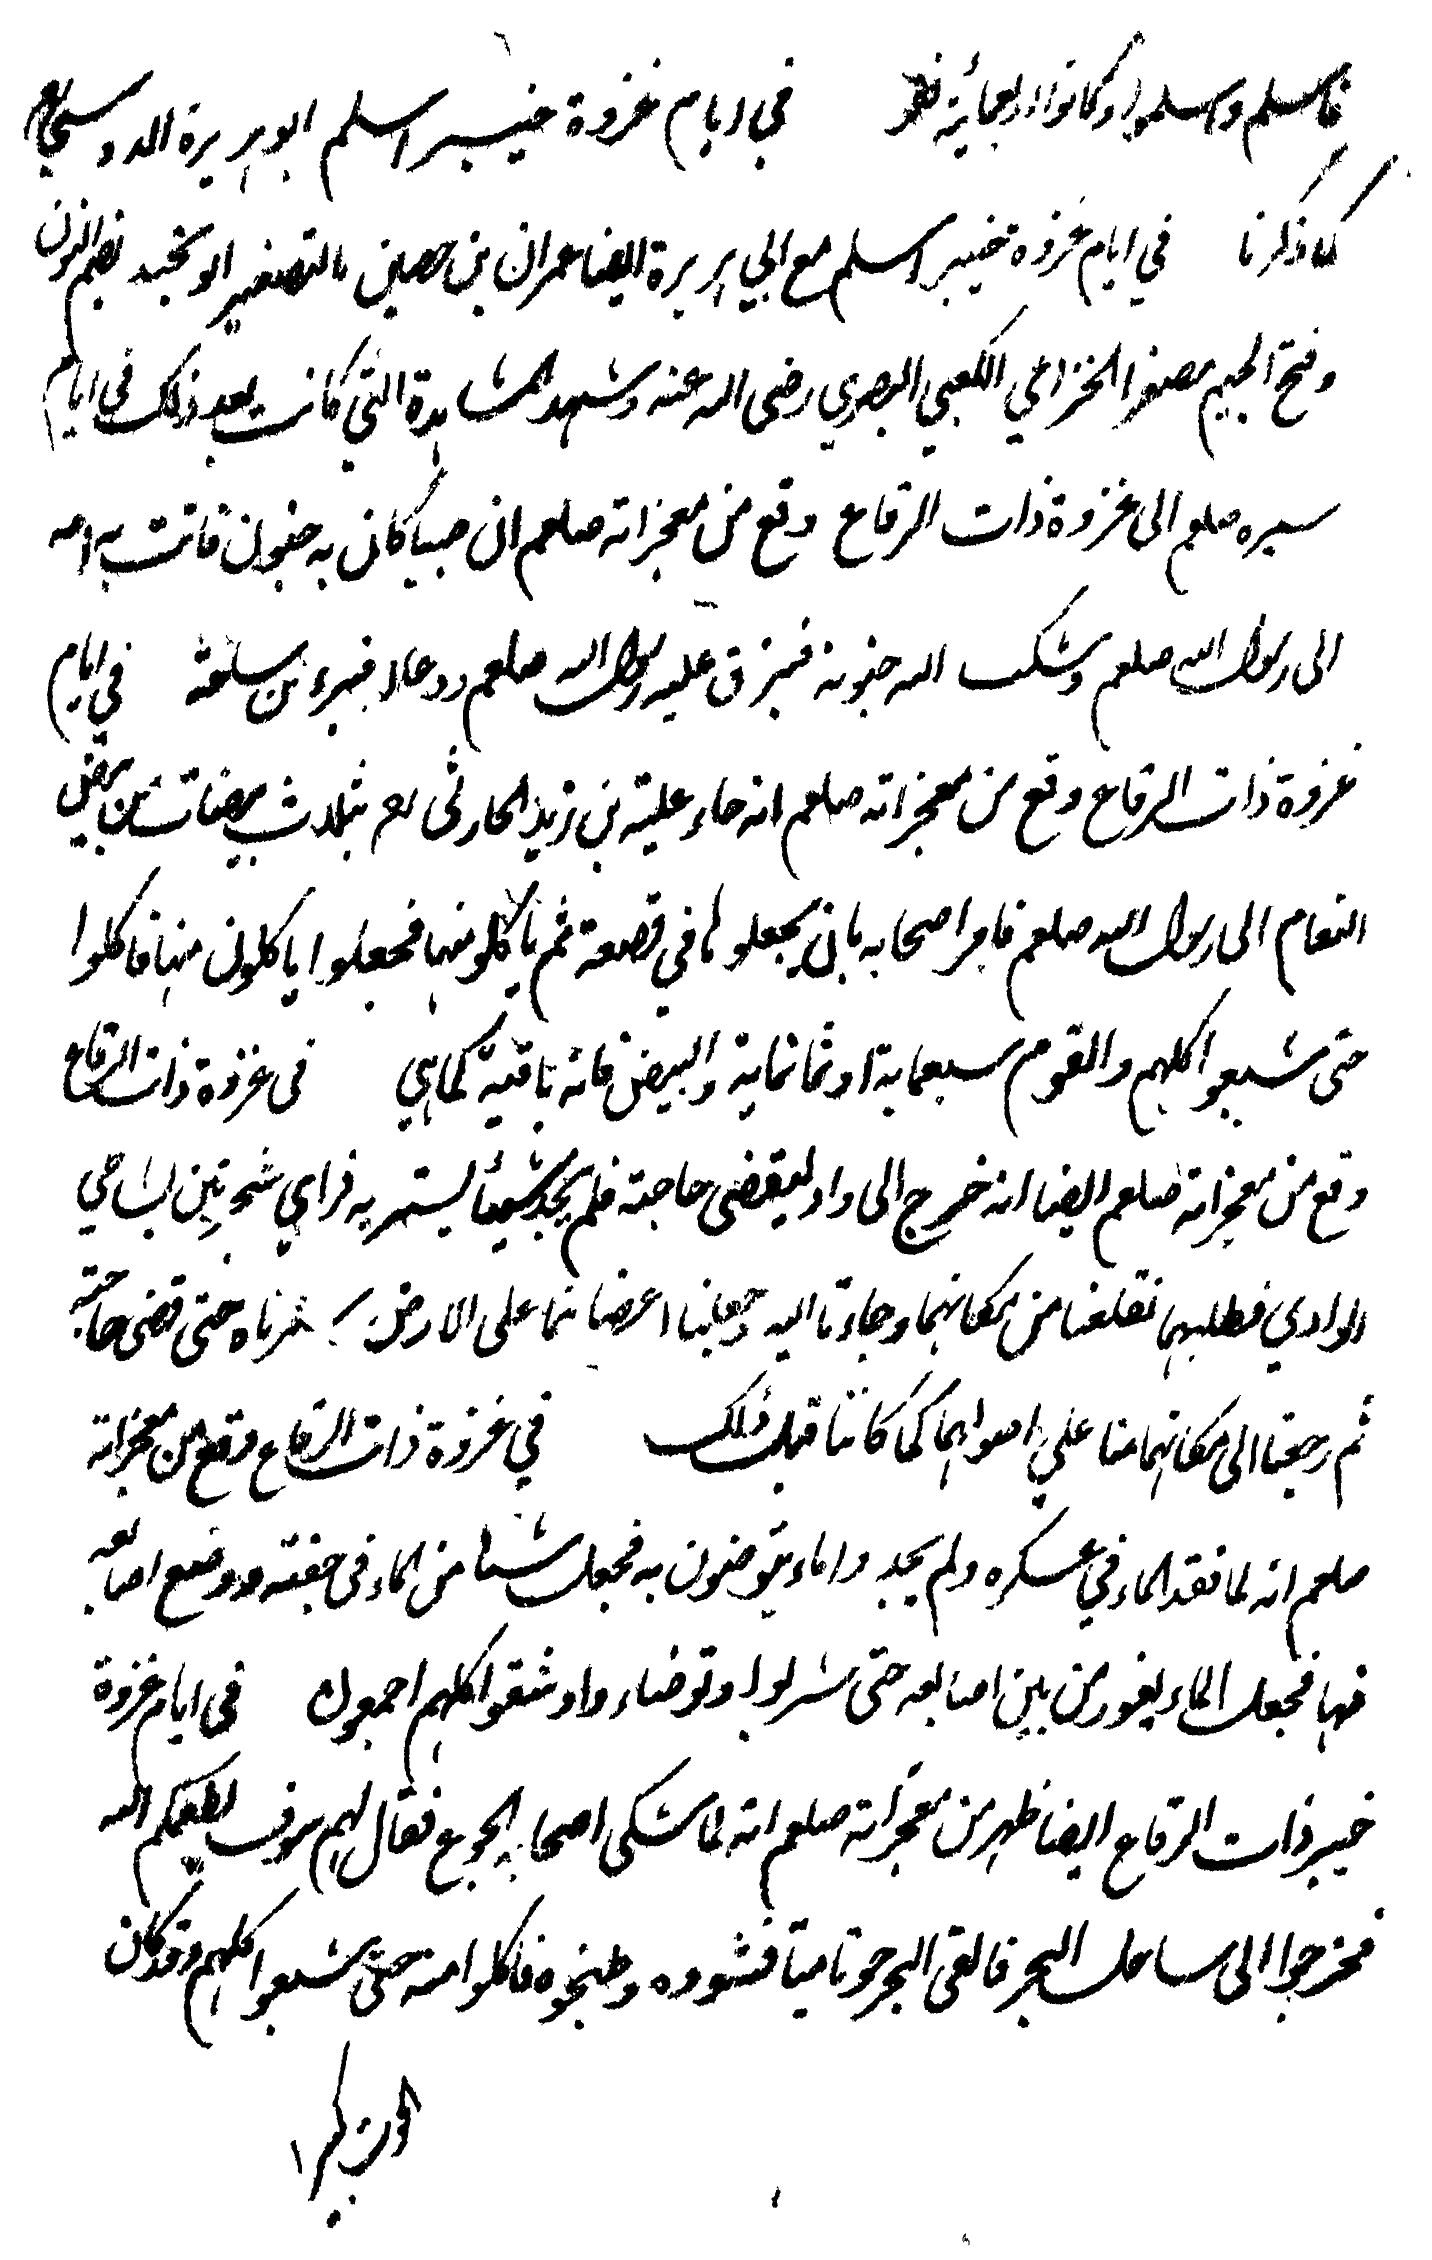 فاسلم واسلموا وكانوا اربعمائة نفر في ايام غزوة خيبر اسلم ابو هريرة الدوسي رضع
كما ذكرنا في ايام غزوة خيبر اسلم مع ابي هريرة ايضا عمران بن حصين بالتصغير ابو نجيد بضم النون
وفتح الجيم مصغرا الخزاعي الكعبي البصري رضى الله عنه وشهد المشاهدة التي كانت بعد ذلك في ايام
سيره صلعم الى غزوة ذات الرقاع وقع من معجزاته صلعم ان صبيا كان به جنون فاتت به امه
الى رسول الله صلعم وشكت اليه جنونه فبزق عليه رسول الله صلعم ودعا له فبرء من سلعته في ايام
غزوة ذات الرقاع وقع من معجزاته صلعم انه جاء علبة بن زيد الحارثى رضع بثلاث بيضات من بيض
النعام الى رسول الله صلعم فامر اصحابه بان يجعلوها في قصعة ثم ياكلو منها فجعلوا ياكلون منها فاكلوا
حتى شبعوا كلهم والقوم سبعماية او ثمانماية والبيض فانه باقية كما هي فى غزوة ذات الرقاع
وقع من معجزاته صلعم ايضا انه خرج الى واد ليقضى حاجته فلم يجد شيئا يستتر به فراي شجرتين بشاطي
الوادي فطلبهما فقلعتا من مكانهما وجاءتا اليه وجعلتا اعضانهما على الارض سترتاه حتى قضى حاجته
ثم رجعتا الى مكانهما على اصولهما كما كانتا قبل ذلك في غزوة ذات الرقاع وقع من معجزاته
صلعم انه لما فقد الماء في عسكره ولم يجدوا ماء يتوضئون به فجعل شيئا من الماء فى جفنته ووضع اصابعه
فيها فجعل الماء يفور من بين اصابعه حتى شربوا وتوضاء وا وشقوا كلهم اجمعون فى ايام غزوة
خيبر ذات الرقاع ايضا ظهر من معجزاته صلعم انه لما شكى اصحابه الجوع فقال لهم سوف يطعمكم الله
فخرجوا الى ساحل البحر فالقى البحر حوتا ميتا فشووه وطبخوه فاكلوا منه حتى شبعوا كلهم وقد كان
الحوت كبيرا